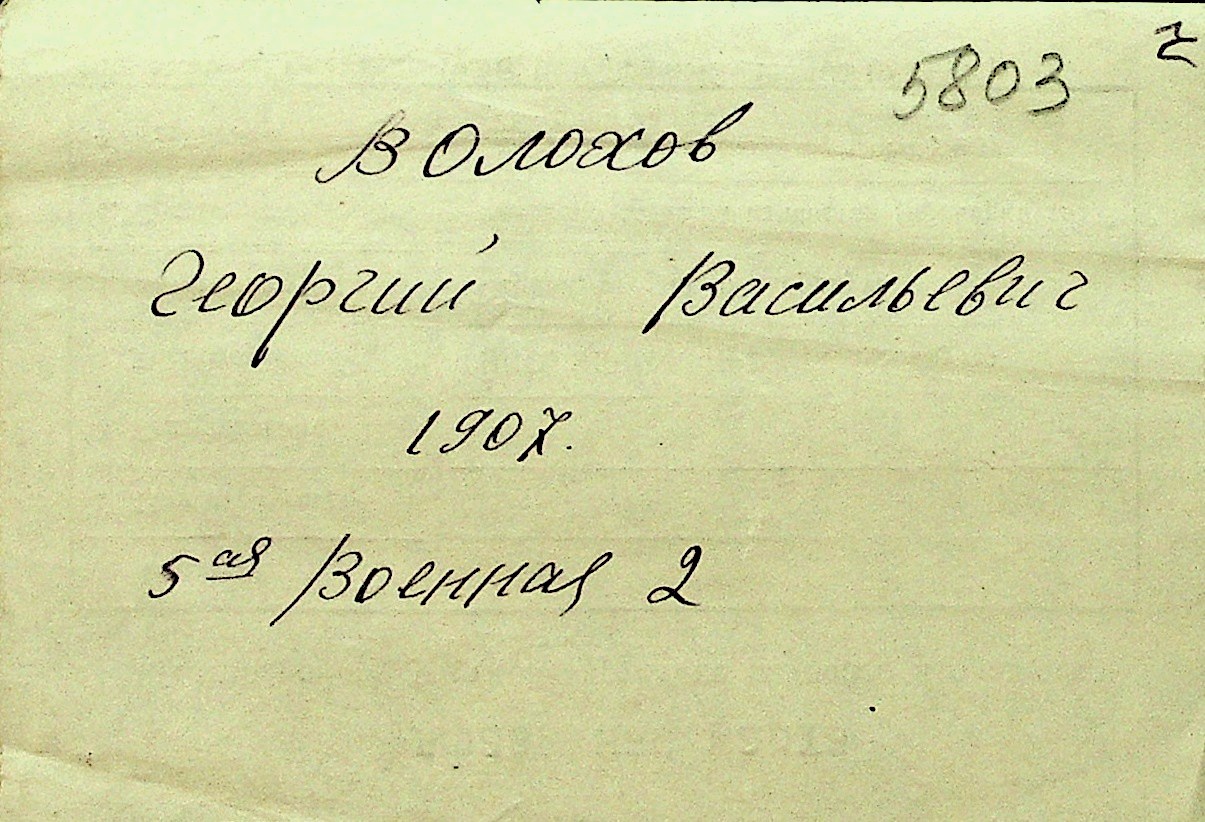 5803
Волохов
Георгий Васильевич
1907.
5ая Военная 2